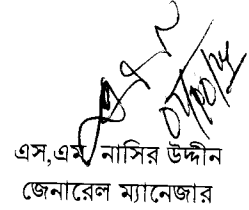 এস,এম নাসির উদ্দীন
জেনারেল ম্যানেজার